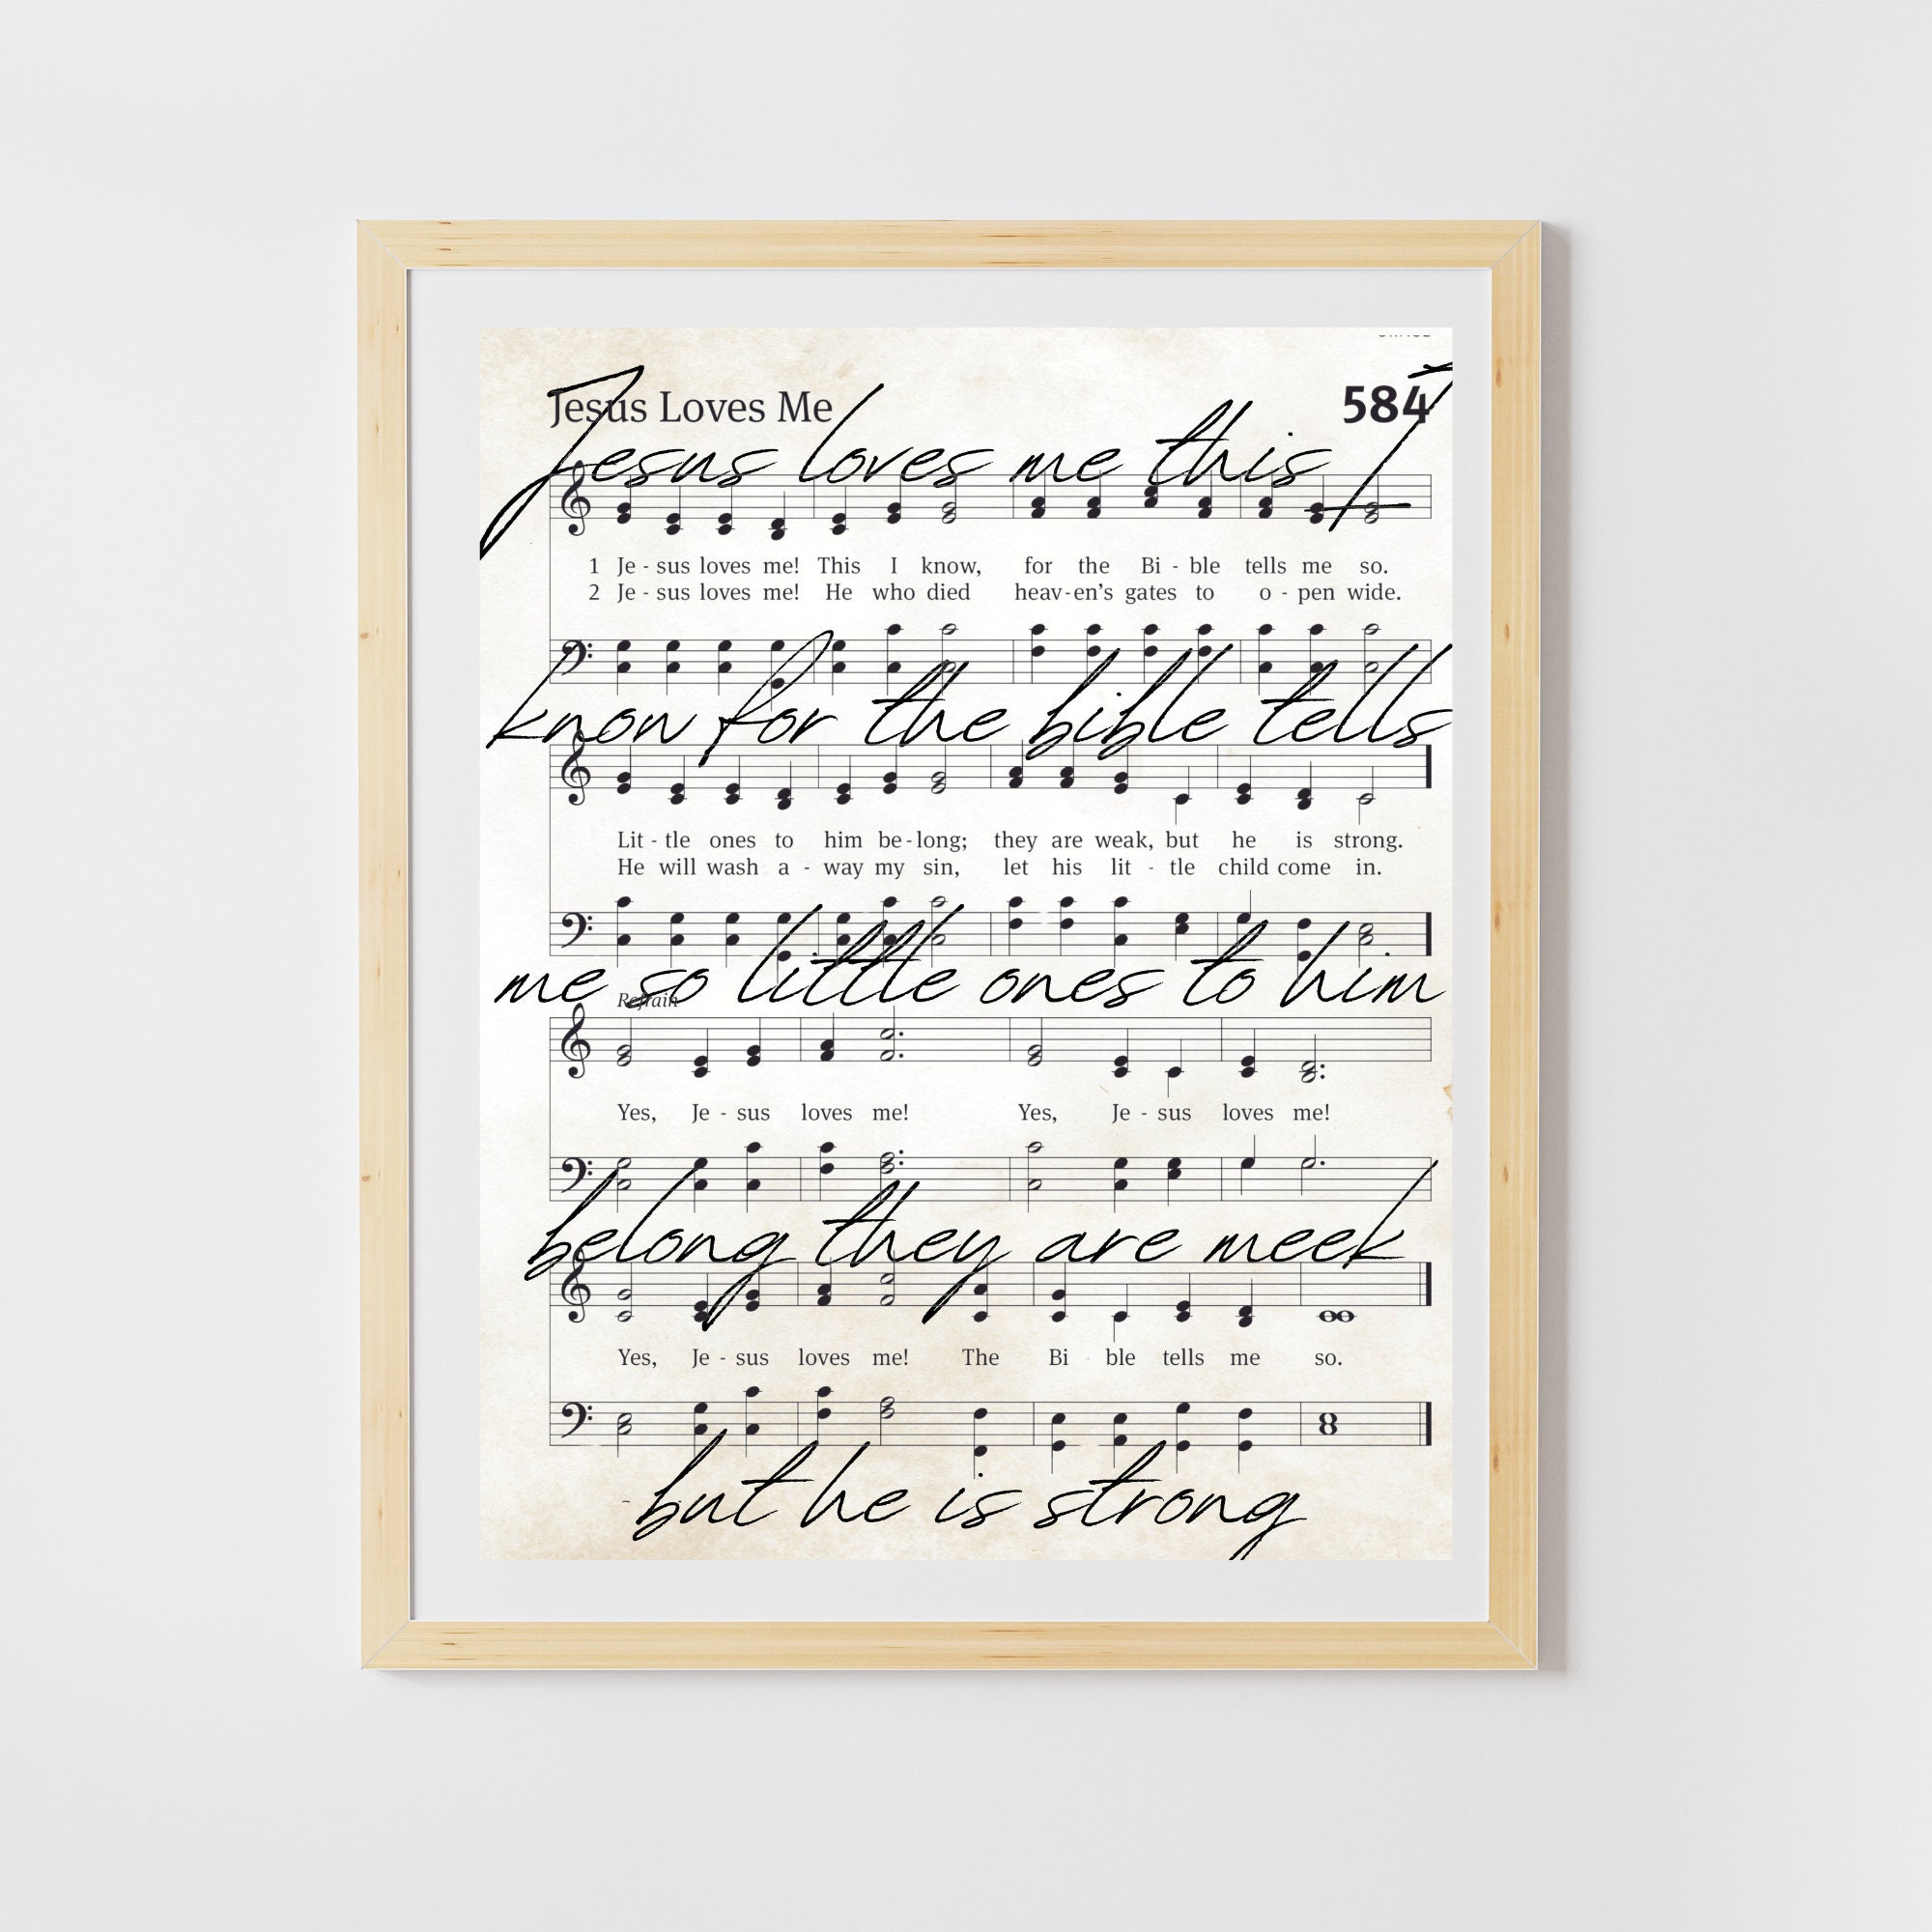 Jesus Loves Me 584
Jesus loves me this I
1 Je - sus loves me! This I know, for the Bi - ble tells me so.
2 Je - sus loves me! He who died heav-en's gates to o - pen wide.
know for the bible tells
Lit - tle ones to him be-long; they are weak, but he is strong.
He will wash a - way my sin, let his lit - tle child come in.
me so little ones to him
Refrain
Yes, Je - sus loves me! Yes, Je - sus loves me!
belong they are meek
Yes, Je - sus loves me! The Bi - ble tells me so.
but he is strong